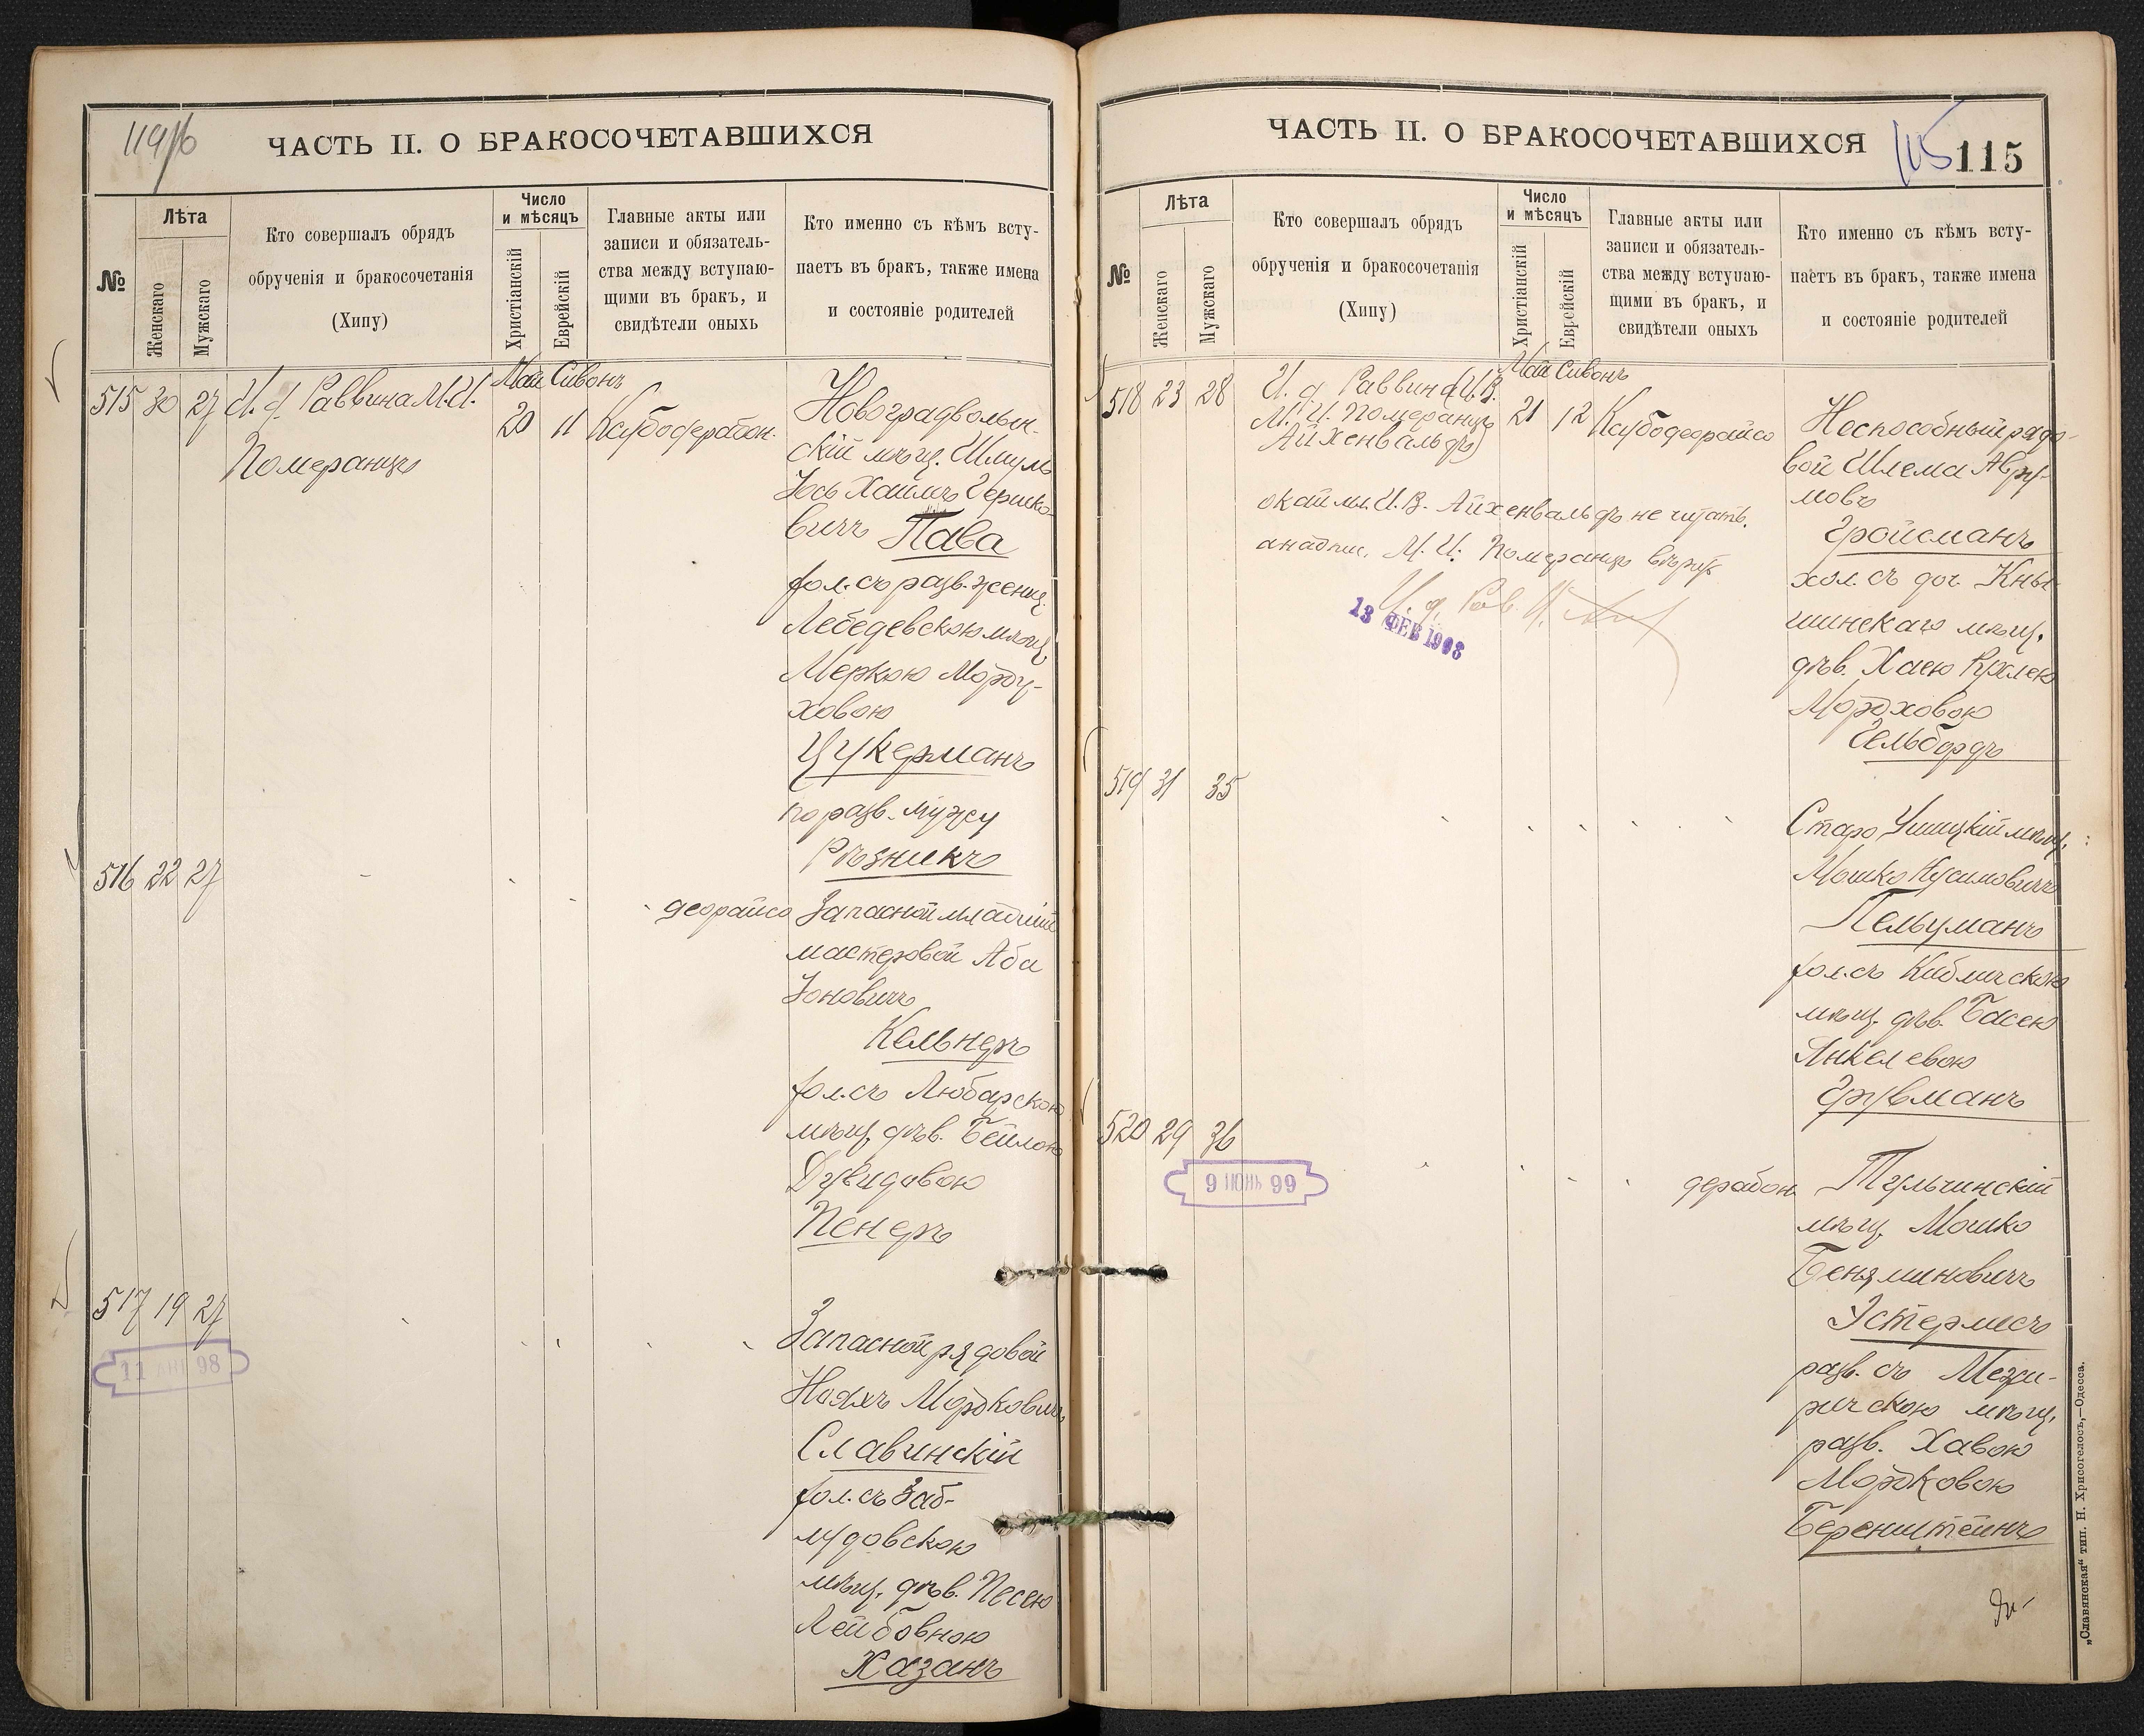 119/16
ЧАСТЬ II. О БРАКОСОЧЕТАВШИХСЯ
№
Лѣта
Женскаго
Мужскаго
Кто совершалъ обрядъ
обрученія и бракосочетанія
(Хипу)
Число
и мѣсяцъ
Христіанскій
Еврейскій
Главные акты или
записи и обязатель-
ства между вступаю-
щими въ бракъ, и
свидѣтели оныхъ
Кто именно съ кѣмъ всту-
паетъ въ бракъ, также имена
и состояніе родителей
Май Сивонъ
515 30 27 И. д. Раввина М. И.
Померанцъ
20 11
Новоградволын-
скій мѣщ. Шмуль
Іось Хаймъ Гершко-
вичъ Пава
хол. съ разв. женщ.
Лебедевскою мѣщ.
Меркою Морду-
ховою
Цукерманъ
по разв. мужу
Рѣзникъ
516 22 27
деорайсо Запасной младшій
мастеровой Аба
Іоновичъ
Кельнеръ
хол. съ Любарскою
мѣщ. дѣв. Бейлою
Дувидовою
Пенеръ
517 19 27
98
Запасной рядовой
Ноахъ Мордковичъ
Славинскій
хол. съ Заб-
лудовскою
мѣщ. дѣв. Песею
Лейбовною
Хазанъ
ЧАСТЬ II. О БРАКОСОЧЕТАВШИХСЯ
115 115
№
Лѣта
Женскаго
Мужскаго
Кто совершалъ обрядъ
обрученія и бракосочетанія
(Хипу)
Число
и мѣсяцъ
Христіанскій
Еврейскій
Главные акты или
записи и обязатель-
ства между вступаю-
щими въ бракъ, и
свидѣтели оныхъ
Кто именно съ кѣмъ всту-
паетъ въ бракъ, также имена
и состояніе родителей
Май Сивонъ
518 23 28 И. д. Раввина (И. В.
М. И. Померанцъ
Айхенвальдъ)
21 12 Касубодеорайсо
Неспособный рядо-
вой Шлема Авру-
мовъ
Гройсманъ
хол. съ доч. Кны-
шинскаго мѣщ.
дѣв. Хаею
Мордховою
Гельбордъ
И. В. Айхенвальдъ не читать.
а надпис. М. И. Померанцъ вѣрить
И. д. Рав.
13 ФЕВ 1903
519 31 35
Старо Ушицкій мѣщ.
Мошко Нусимовичъ
Пельцманъ
хол. съ Кибличскою
мѣщ. дѣв. Басею
Янкелевою
Грувманъ
520 29 36
9 ІЮНЬ 99
Тульчинскій
мѣщ. Мошко
Беняминовичъ
Эстермесъ
разв. съ Межи-
ричскою мѣщ.
разв. Хавою
Мордковою
Беренштейнъ
„Славянская“ тип. Н. Хрисогелосъ,—Одесса.